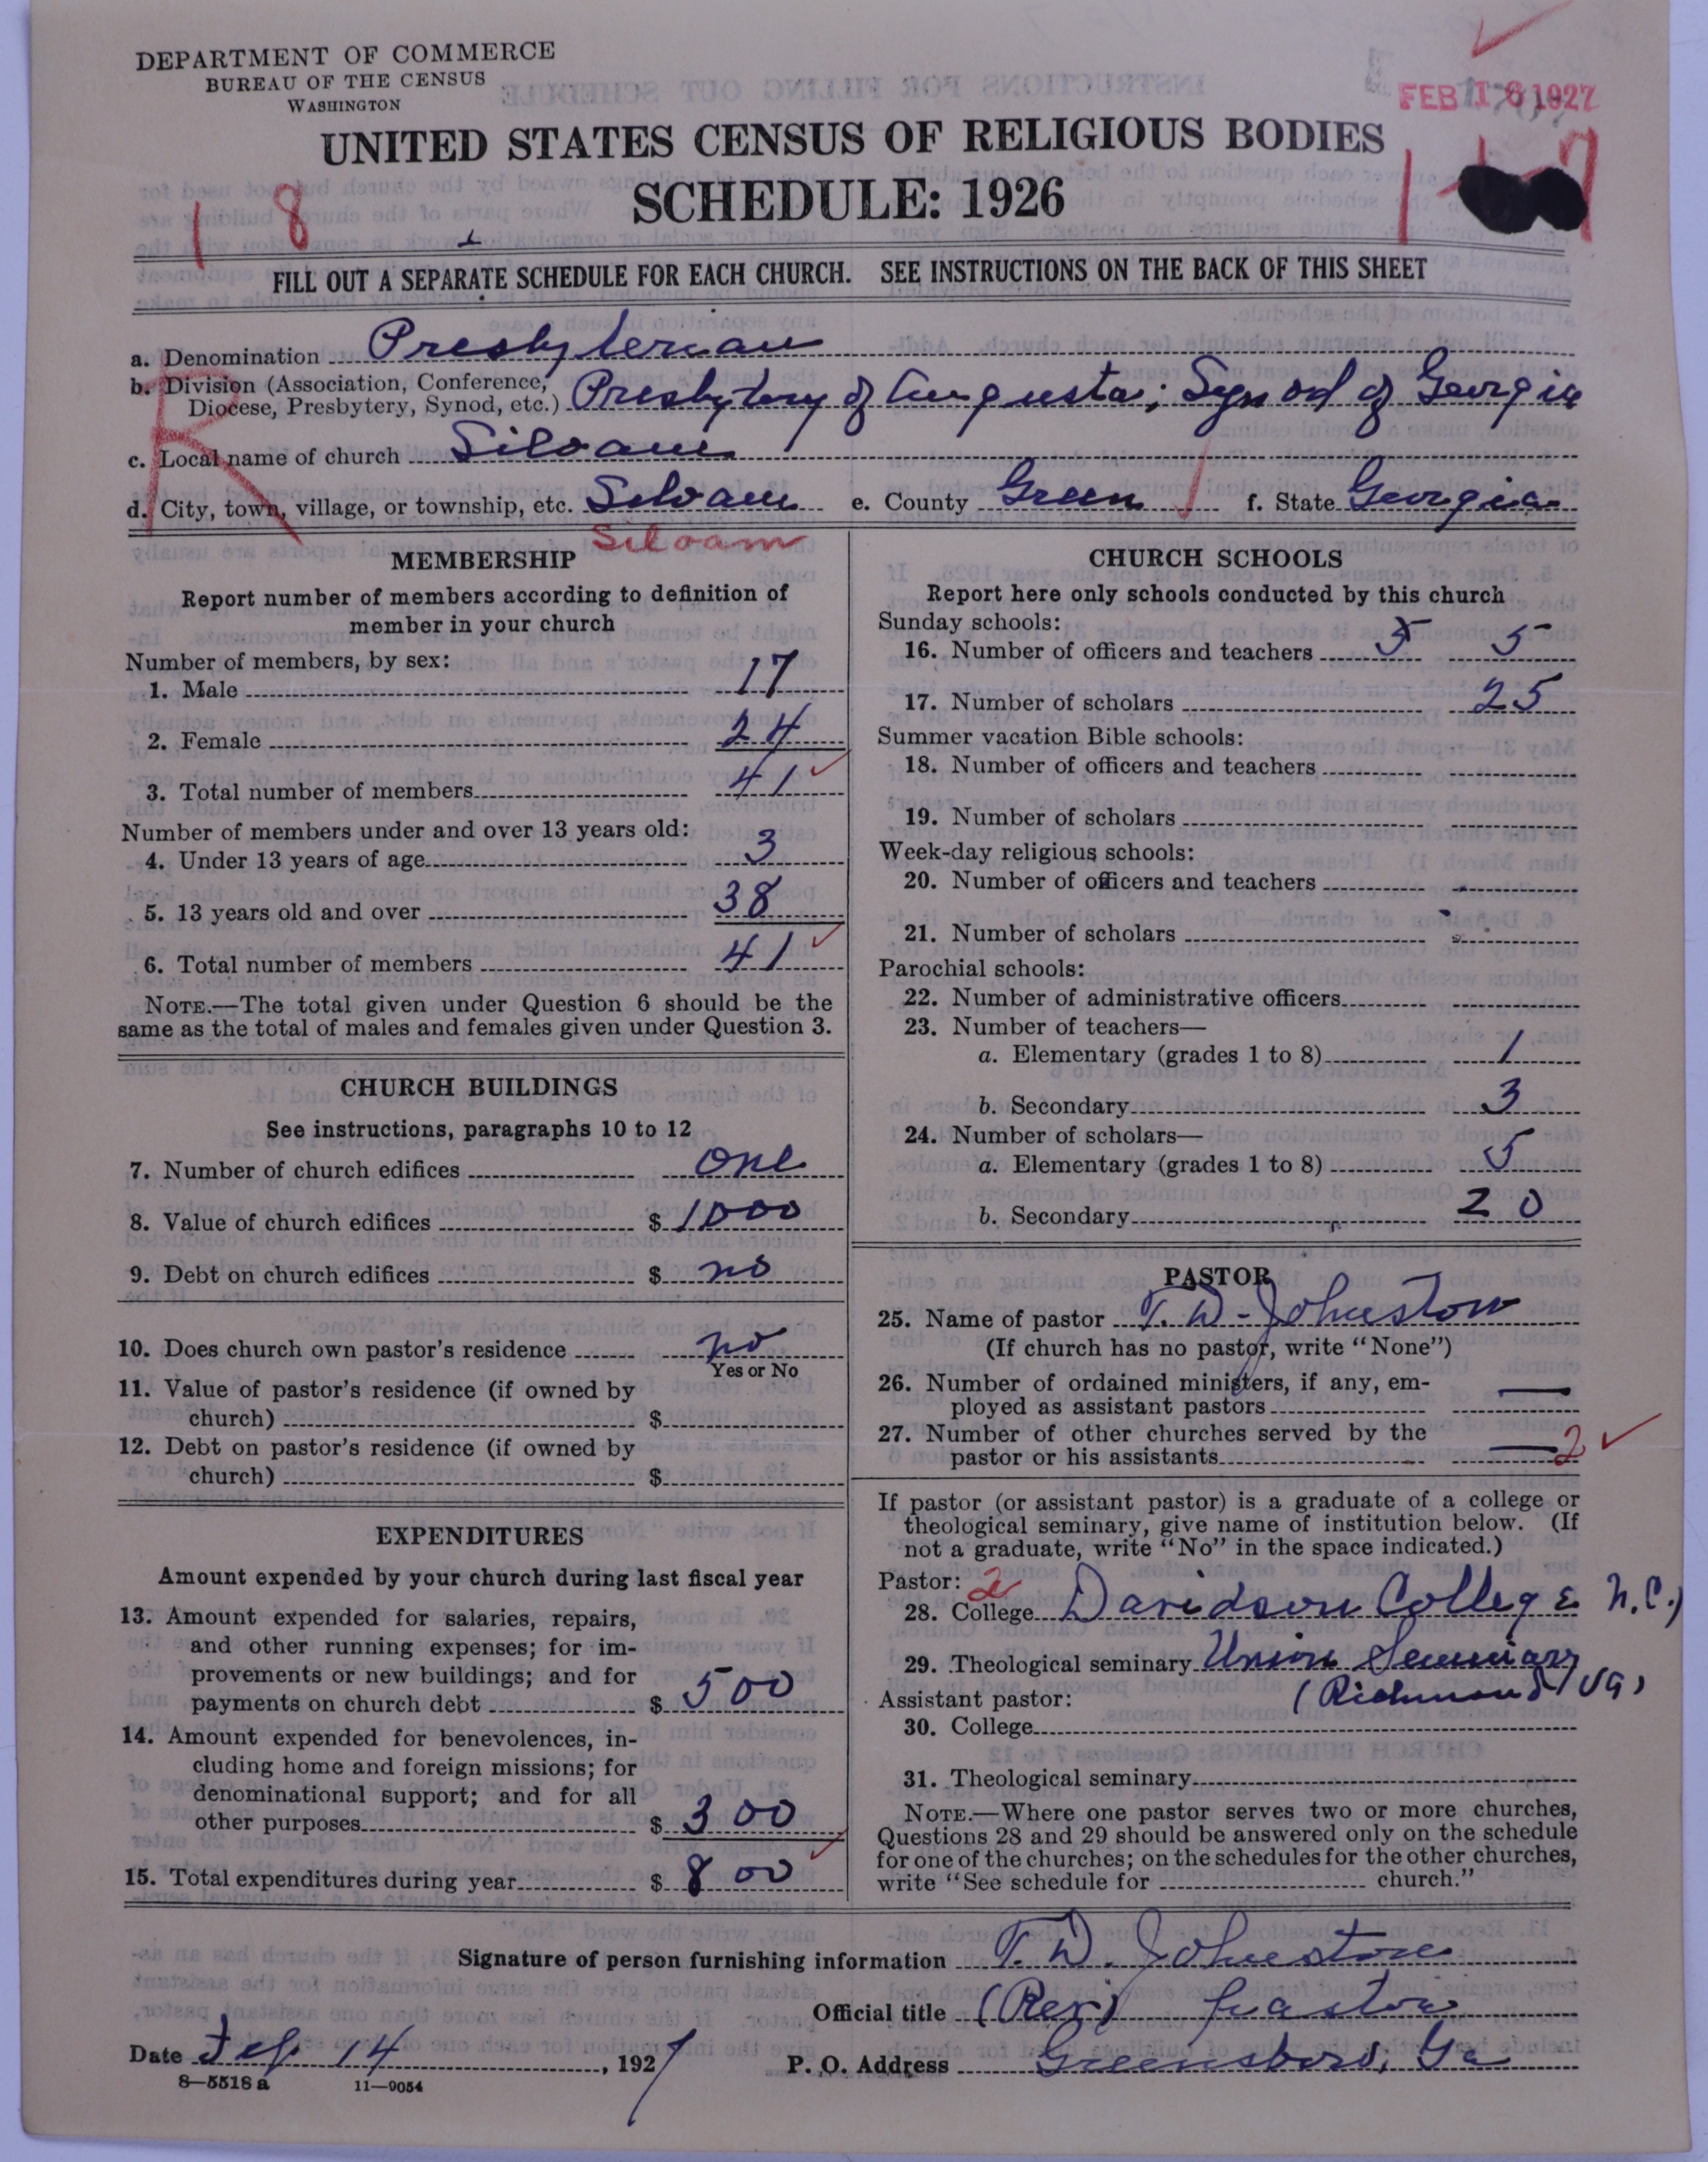 DEPARTMENT OF COMMERCE
BUREAU OF THE CENSUS
WASHINGTON
FEB 16 1927
UNITED STATES CENSUS OF RELIGIOUS BODIES
SCHEDULE: 1926
1 8
FILL OUT A SEPARATE SCHEDULE FOR EACH CHURCH. SEE INSTRUCTIONS ON THE BACK OF THIS SHEET
a. Denomination Presbyterian
b. Division (Association, Conference, Diocese, Presbytery, Synod, etc.) Presbytery of Augusta; Synod of Georgia
c. Local name of church Siloam
d. City, town, village, or township, etc. Siloam e. County Green f. State Georgia
R
Siloam
MEMBERSHIP
Report number of members according to definition of
member in your church
Number of members, by sex:
1. Male 17
2. Female 24
3. Total number of members 41
Number of members under and over 13 years old:
4. Under 13 years of age 3
5. 13 years old and over 38
6. Total number of members 41
NOTE.—The total given under Question 6 should be the
same as the total of males and females given under Question 3.
CHURCH BUILDINGS
See instructions, paragraphs 10 to 12
7. Number of church edifices one
8. Value of church edifices $ 1000
9. Debt on church edifices $ no
10. Does church own pastor's residence no
Yes or No
11. Value of pastor's residence (if owned by
church) $
12. Debt on pastor's residence (if owned by
church) $
EXPENDITURES
Amount expended by your church during last fiscal year
13. Amount expended for salaries, repairs,
and other running expenses; for im-
provements or new buildings; and for
payments on church debt $ 500
14. Amount expended for benevolences, in-
cluding home and foreign missions; for
denominational support; and for all
other purposes $ 300
15. Total expenditures during year $ 800
CHURCH SCHOOLS
Report here only schools conducted by this church
Sunday schools:
16. Number of officers and teachers 5 5
17. Number of scholars 25
Summer vacation Bible schools:
18. Number of officers and teachers
19. Number of scholars
Week-day religious schools:
20. Number of officers and teachers
21. Number of scholars
Parochial schools:
22. Number of administrative officers
23. Number of teachers—
a. Elementary (grades 1 to 8) 1
b. Secondary 3
24. Number of scholars—
a. Elementary (grades 1 to 8) 5
b. Secondary 20
PASTOR
25. Name of pastor T. D. Johnston
(If church has no pastor, write "None")
26. Number of ordained ministers, if any, em-
ployed as assistant pastors —
27. Number of other churches served by the
pastor or his assistants — 2
If pastor (or assistant pastor) is a graduate of a college or
theological seminary, give name of institution below. (If
not a graduate, write "No" in the space indicated.)
Pastor: 2
28. College Davidson College N.C.)
29. Theological seminary Union Seminary
Assistant pastor: (Richmond Va)
30. College
31. Theological seminary
NOTE.—Where one pastor serves two or more churches,
Questions 28 and 29 should be answered only on the schedule
for one of the churches; on the schedules for the other churches,
write "See schedule for church."
Signature of person furnishing information T. D. Johnston
Official title (Rev) Pastor
Date Feb 14, 1927 P. O. Address Greensboro, Ga
8—5518 a 11—9054